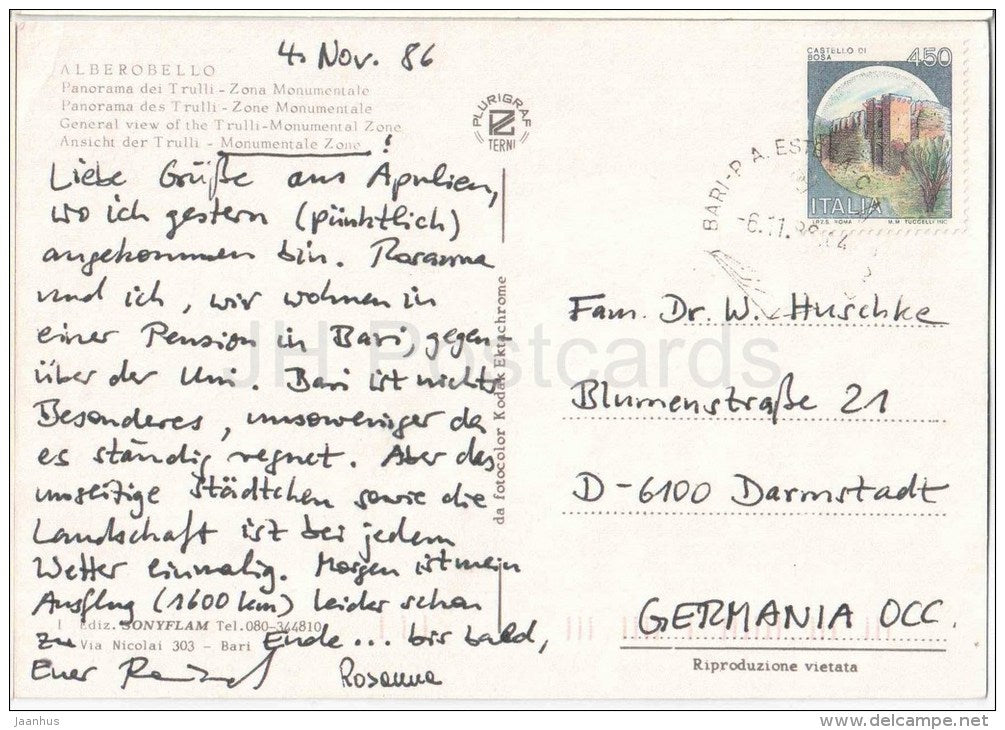 4. Nov. 86
ALBEROBELLO
Panorama dei Trulli - Zona Monumentale
Panorama des Trulli - Zone Monumentale
General view of the Trulli - Monumental Zone
Ansicht der Trulli - Monumentale Zone!
Liebe Grüße aus Apulien,
wo ich gestern (pünktlich)
angekommen bin. Rosanna
und ich, wir wohnen in
einer Pension in Bari, gegen-
über der Uni. Bari ist nichts
Besonderes, umsoweniger da
es ständig regnet. Aber das
umseitige Städtchen sowie die
Landschaft ist bei jedem
Wetter einmalig. Morgen ist mein
Ausflug (1600 km) leider schon
zu Ende... bis bald,
Euer
Rosanna
Ediz. SONYFLAM Tel. 080-344810
Via Nicolai 303 - Bari
PLURIGRAF
TERNI
da fotocolor Kodak Ektachrome
CASTELLO DI
BOSA
450
ITALIA
I.P.Z.S. ROMA M.M. TUCCELLI
BARI-P.A. EST
-6.11.86
Fam. Dr. W. Huschke
Blumenstraße 21
D-6100 Darmstadt
GERMANIA OCC.
Riproduzione vietata
JH Postcards
Jaanhus
www.delcampe.net